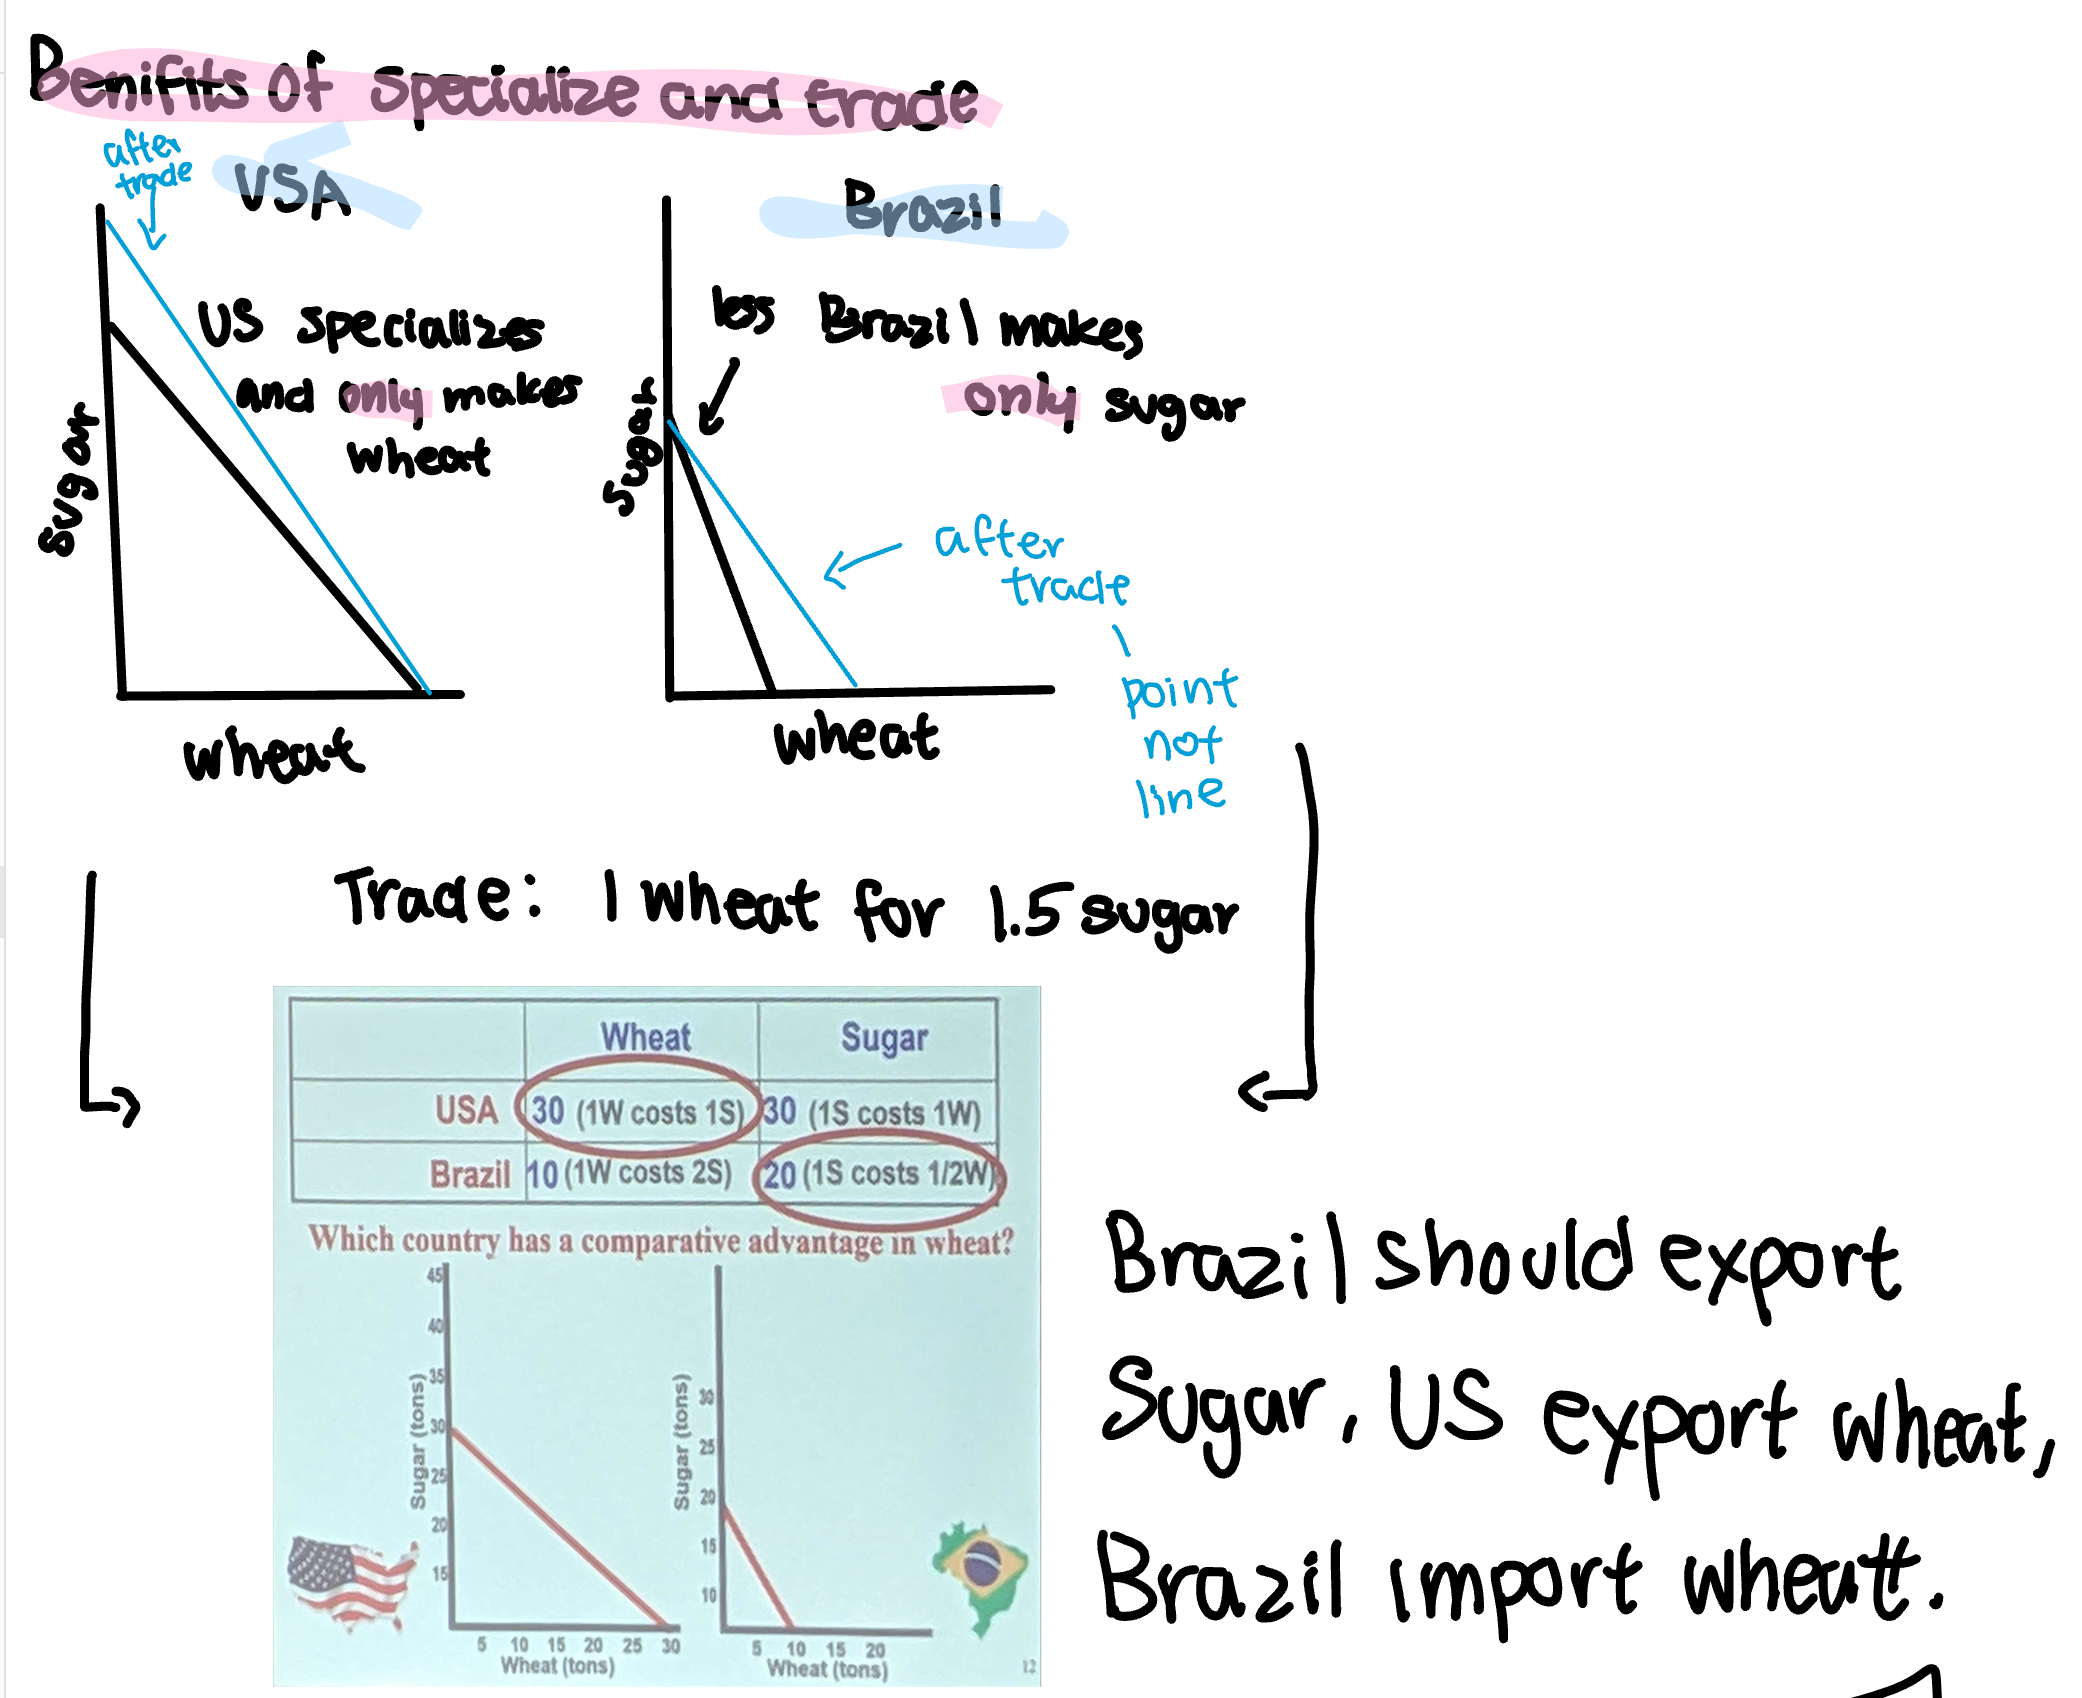 Benifits of specialize and trade
after
trade
USA
Brazil
US specializes
and only makes
wheat
less
Brazil makes
only sugar
Sugar
Sugar
after
trade
point
not
line
wheat
wheat
Trade: 1 wheat for 1.5 sugar
Wheat Sugar
USA 30 (1W costs 1S) 30 (1S costs 1W)
Brazil 10 (1W costs 2S) 20 (1S costs 1/2W)
Which country has a comparative advantage in wheat?
45
40
35
30
25
20
15
Sugar (tons)
5 10 15 20 25 30
Wheat (tons)
30
25
20
15
10
Sugar (tons)
5 10 15 20
Wheat (tons)
12
Brazil should export
Sugar, US export wheat,
Brazil import wheatt.